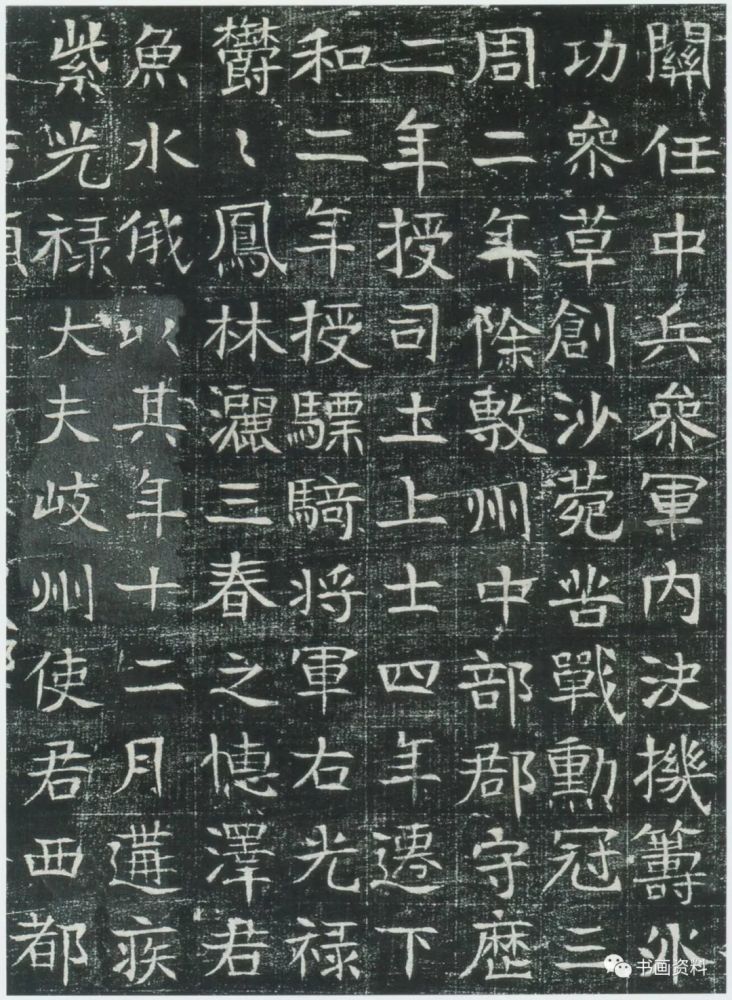 關任中兵叅軍內決機籌外
功叅草創沙菀苦戰勳冠三
周二年除敷州中部郡守歷
二年授司土上士四年遷下
和二年授驃騎将軍右光禄
欝〻鳳林灑三春之憓澤君
魚水俄以其年十二月遘疾
紫光禄大夫岐州使君西都
书画资料